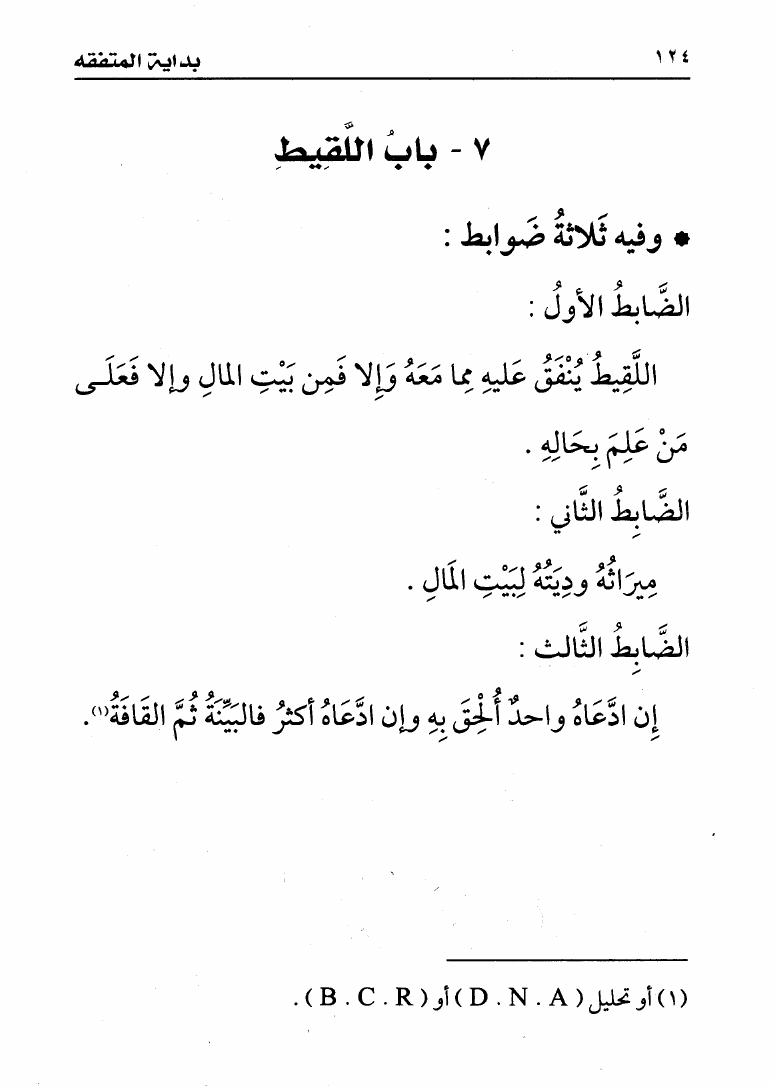 ١٢٤ بداية المتفقه
٧ - بابُ اللَّقِيطِ
* وفيه ثَلاثةُ ضَوابط :
الضَّابطُ الأولُ :
اللَّقِيطُ يُنْفَقُ عَليهِ مِما مَعَهُ وَإِلا فَمِن بَيْتِ المالِ وإلا فَعَلَى
مَنْ عَلِمَ بِحَالِهِ .
الضَّابِطُ الثَّاني :
مِيرَاثُهُ ودِيَتُهُ لِبَيْتِ المَالِ .
الضَّابِطُ الثَّالث :
إِن ادَّعَاهُ واحدٌ أُلْحِقَ بِهِ وإن ادَّعَاهُ أكثرُ فالبَيِّنَةُ ثُمَّ القَافَةُ(١).
(١) أو تحليل ( D . N . A ) أو ( B . C . R ) .